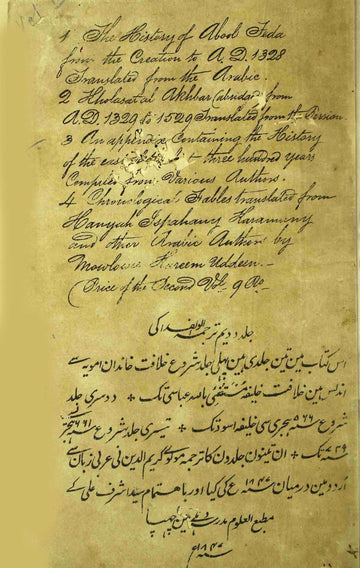 1 The History of Abool Feda
from the Creation to A.D. 1328
Translated from the Arabic.
2 Kholasat al Akhbar (abridged from
A.D. 1329 to 1529 Translated from the Persian.
3 An appendix Containing the History
of the three hundred years
Compiled from Various Authors.
4 Chronological Tables translated from
Hamzah Isfahany
and other Arabic Authors by
Mowlowie Kareem Uddeen.
(Price of the Second Vol. 9 Rs
جلد دویم ترجمہ ابوالفدا کی
اس کتاب مین تین جلدی ہین پہلی جلد شروع خلافت خاندان امویہ سے
اندلس مین خلافت خلیفہ عباسی تک دوسری جلد
شروع سنہ ۵۶۶ ہجری سی تک تیسری جلد شروع سنہ ۶۶۱ ہجری
۷۲۹ تک ان تینون جلدون کا ترجمہ مولوی کریم الدین نی عربی زبان سے
اردو مین درمیان سنہ ۱۸۴۶ ع کی کیا اور باہتمام سید اشرف علی کے
مطبع العلوم مدرسہ دہلی مین چھپا
سنہ ۱۸۴۷